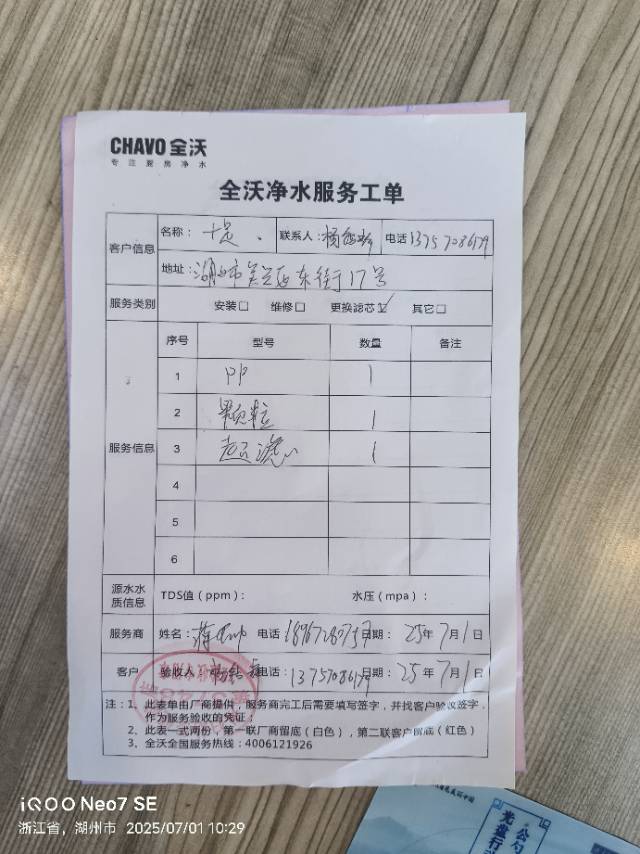 CHAVO 全沃
专注厨房净水
全沃净水服务工单
客户信息
名称： 联系人：杨 电话 13757086179
地址：湖州市吴兴区东街17号
服务类别 安装□ 维修□ 更换滤芯☑ 其它□
服务信息
序号 型号 数量 备注
1 PP 1
2 颗粒 1
3 超滤 1
4
5
6
源水水质信息 TDS值（ppm）： 水压（mpa）：
服务商 姓名：蒋 电话 日期：25年7月1日
客户 验收人：杨 电话：13757086179 日期：25年7月1日
注：1、此表单由厂商提供，服务商完工后需要填写签字，并找客户验收签字，
作为服务验收的凭证；
2、此表一式两份，第一联厂商留底（白色），第二联客户留底（红色）
3、全沃全国服务热线：4006121926
iQOO Neo7 SE
浙江省，湖州市 2025/07/01 10:29
光盘行